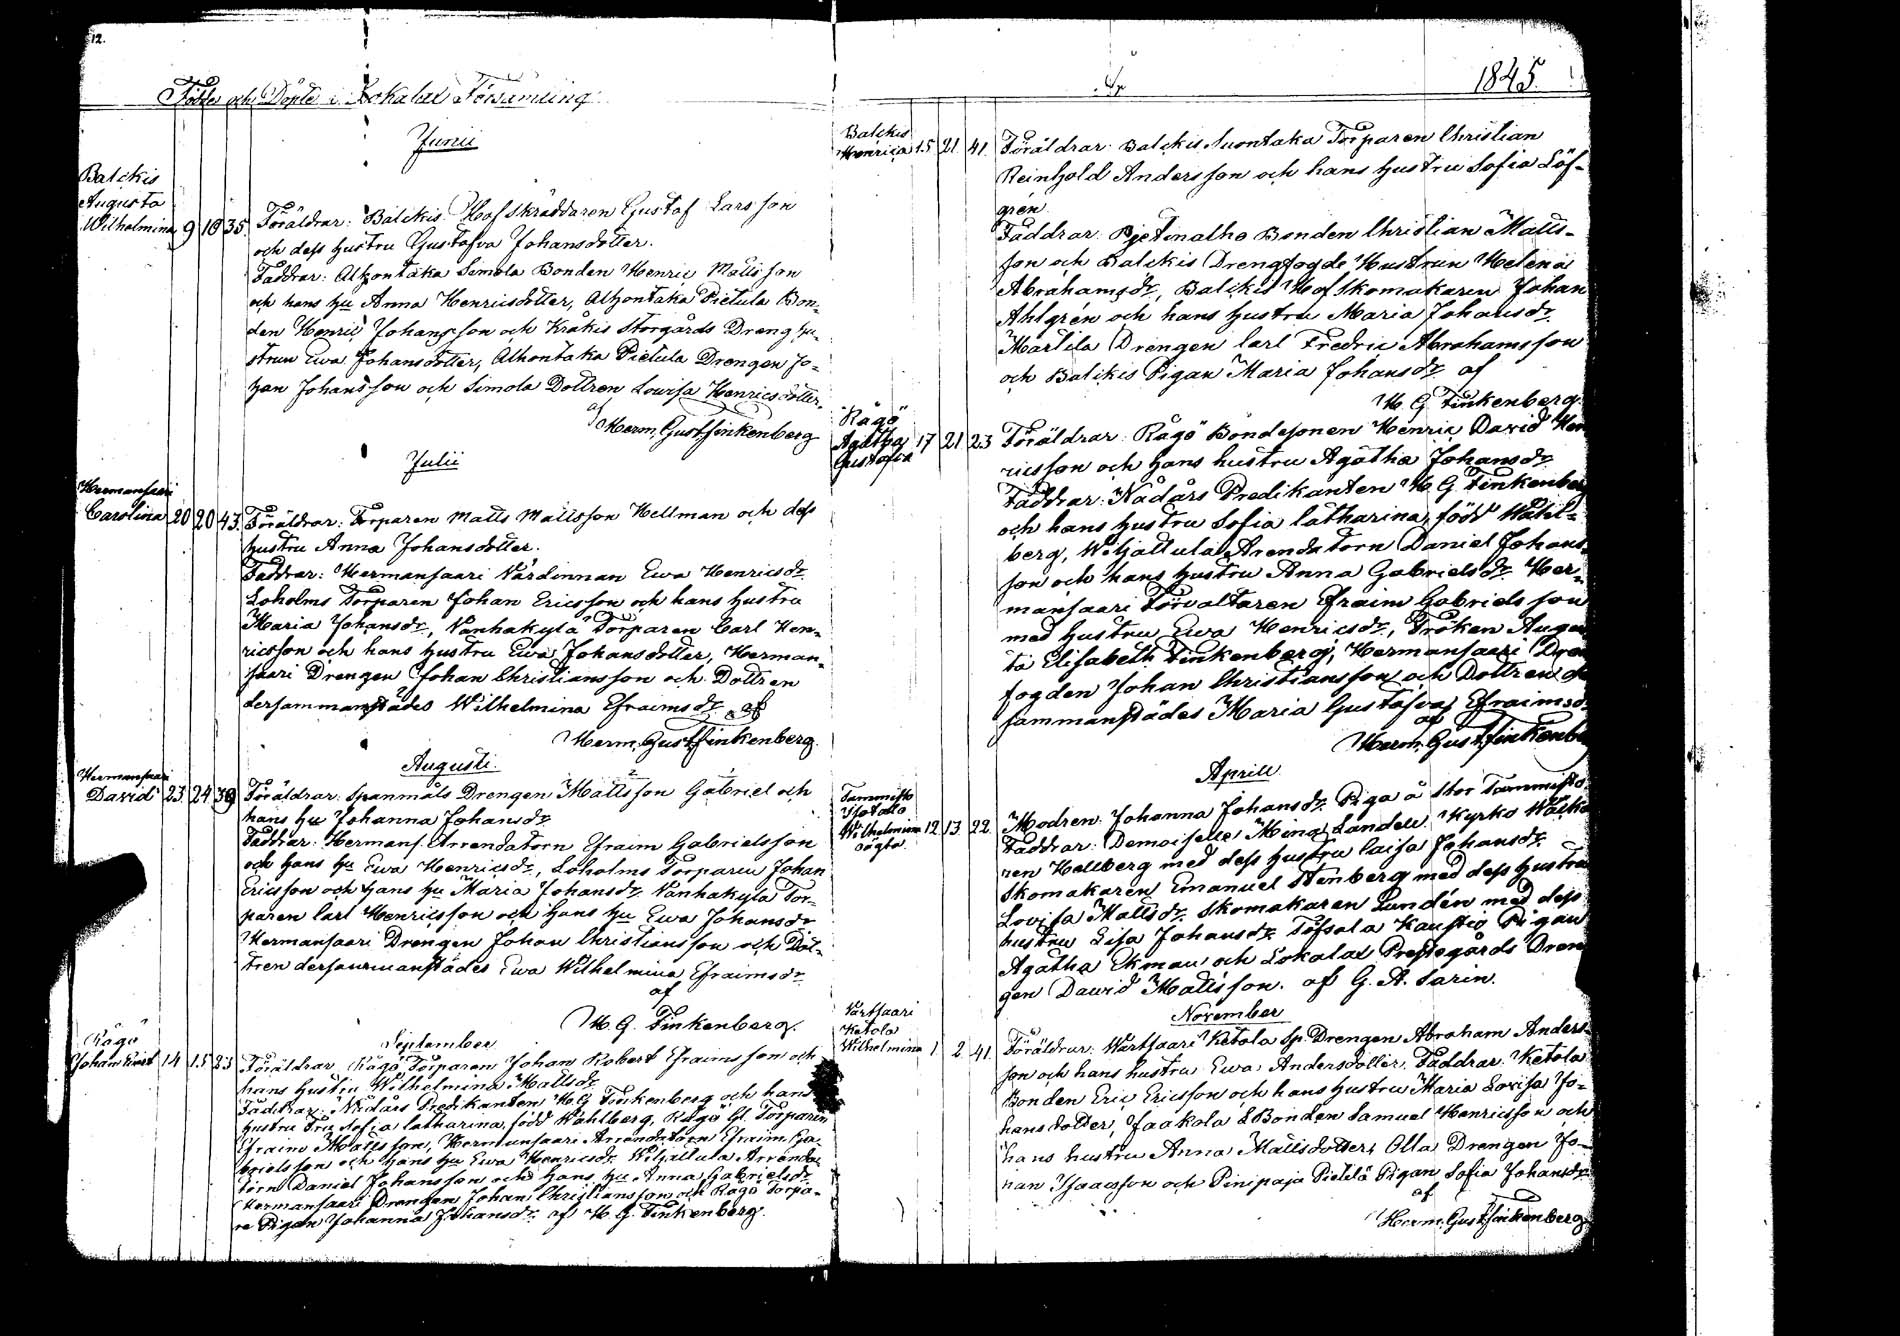 12.
Födde och Döpte i Lokalax Församling
Junii
Balckis
Augusta
Wilhelmina 9 10 35. Föräldrar: Balckis Hofskräddaren Gustaf Larsson
och dess hustru Gustafva Johansdotter.
Faddrar: Alhontaka Simola Bonden Henric Matsson
och hans hu Anna Henricsdotter, Alhontaka Pietula Bon-
den Henric Johansson och Kråkis Storgårds Dreng hu-
strun Ewa Johansdotter, Alhontaka Pietula Drengen Jo-
han Johansson och Simola Dottren Lowisa Henricsdotter.
af
Herm. Gust. Finkenberg
Julii
Hermansaari
Carolina 20 20 43. Föräldrar: Torparen Matts Mattsson Hellman och dess
hustru Anna Johansdotter.
Faddrar: Hermansaari Värdinnan Ewa Henricsdr
Loholms Torparen Johan Ericsson och hans hustru
Maria Johansdr, Vanhakylä Torparen Carl Hen-
ricsson och hans hustru Ewa Johansdotter, Herman-
saari Drengen Johan Christiansson och Dottren
dersammanstädes Wilhelmina Efraimsdr af
Herm. Gust. Finkenberg.
Augusti.
Hermansaari
David 23. 24 39 Föräldrar: Spanmåls Drengen Mattsson Gabriel och
hans hu Johanna Johansdr
Faddrar: Hermans. Arrendatorn Efraim Gabrielsson
och hans hu Ewa Henricsdr, Loholms Torparen Johan
Ericsson och hans hu Maria Johansdr Vanhakylä Tor-
paren Carl Henricsson och hans hu Ewa Johansdr
Hermansaari Drengen Johan Christiansson och Dot-
tren dersammanstädes Ewa Wilhelmina Efraimsdr
af
H. G. Finkenberg.
September
Rågö
Johan Ernst 14 15 23 Föräldrar Rågö Torparen Johan Robert Efraimsson och
hans hustru Wilhelmina Mattsdr
Faddrar: Nådårs Predikanten H G Finkenberg och hans
hustru Fru Sofia Catharina, född Wahlberg, Rågö Gl. Torparen
Efraim Mattsson, Hermansaari Arrendatorn Efraim Ga-
brielsson och hans hu Ewa Henricsdr Wiljattula Arrenda-
torn Daniel Johansson och hans hu Anna Gabrielsdr
Hermansaari Drengen Johan Christiansson och Rågö Torpa-
re Pigan Johanna Johansdr af H. G. Finkenberg.
År 1845.
Balckis
Henrica 15 21 41. Föräldrar: Balckis Suontaka Torparen Christian
Reinhold Andersson och hans hustru Sofia Löf-
grén.
Faddrar: Pjetinalho Bonden Christian Matts-
son och Balckis Drengfogde Hustrun Helena
Abrahamsdr, Balckis Hof Skomakaren Johan
Ahlgrén och hans hustru Maria Johansdr
Martila Drengen Carl Fredric Abrahamsson
och Balckis Pigan Maria Johansdr af
H G Finkenberg.
Rågö
Agatha
Gustafva 17 21 23 Föräldrar: Rågö Bondesonen Henric David Hen
ricsson och hans hustru Agatha Johansdr
Faddrar: Nådårs Predikanten H G Finkenberg
och hans hustru Sofia Catharina, född Wahl-
berg, Wiljattula Arendatorn Daniel Johans-
son och hans hustru Anna Gabrielsdr Her-
mansaari Förvaltaren Efraim Gabrielsson
med hustru Ewa Henricsdr, Fröken Augus
ta Elisabeth Finkenberg, Hermansaari Dren
fogden Johan Christiansson och Dottren der
sammanstädes Maria Gustafva Efraimsdr
af
Herm. Gust. Finkenbe
Aprill
Tammisto
Isotalo
Wilhelmina 12 13. 22.
oägta
Modren: Johanna Johansdr Piga å Stor Tammisto.
Faddrar: Demoiselle Mina Landell. Kyrko Wäkta
ren Hellberg med dess hustru Caisa Johansdr
Skomakaren Emanuel Stenberg med dess hustru
Lovisa Mattsdr. Skomakaren Lundén med dess
hustru Lisa Johansdr Töfsala Kaustio Pigan
Agatha Ekman och Lokalax Prestegårds Dren
gen Dawid Mattsson. af G. A. Sarin.
November
Vartsaari
Ketola
Wilhelmina 1. 2. 41. Föräldrar: Wartsaari Ketola Sp. Drengen Abraham Anders-
son och hans hustru Ewa Andersdotter. Faddrar: Ketola
Bonden Eric Ericsson och hans hustru Maria Lovisa Jo-
hansdotter, Jaakola Bonden Samuel Henricsson och
hans hustru Anna Mattsdotter, Olla Drengen Jo-
han Isaacsson och Pinipaja Pietilä Pigan Sofia Johansdr
af
Herm. Gust. Finkenberg